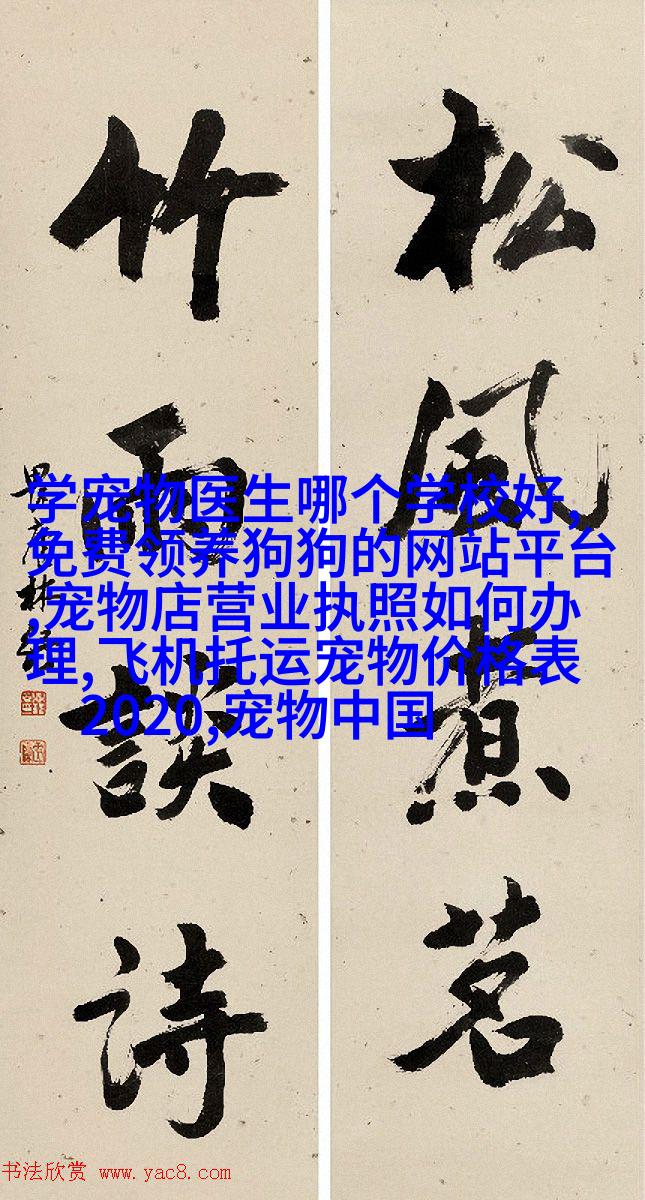 松風煮茗
竹雨談詩
学宠物医生哪个学校好,
免费领养狗狗的网站平台
,宠物店营业执照如何办
理,飞机托运宠物价格表
2020,宠物中国
书法欣赏 www.yac8.com